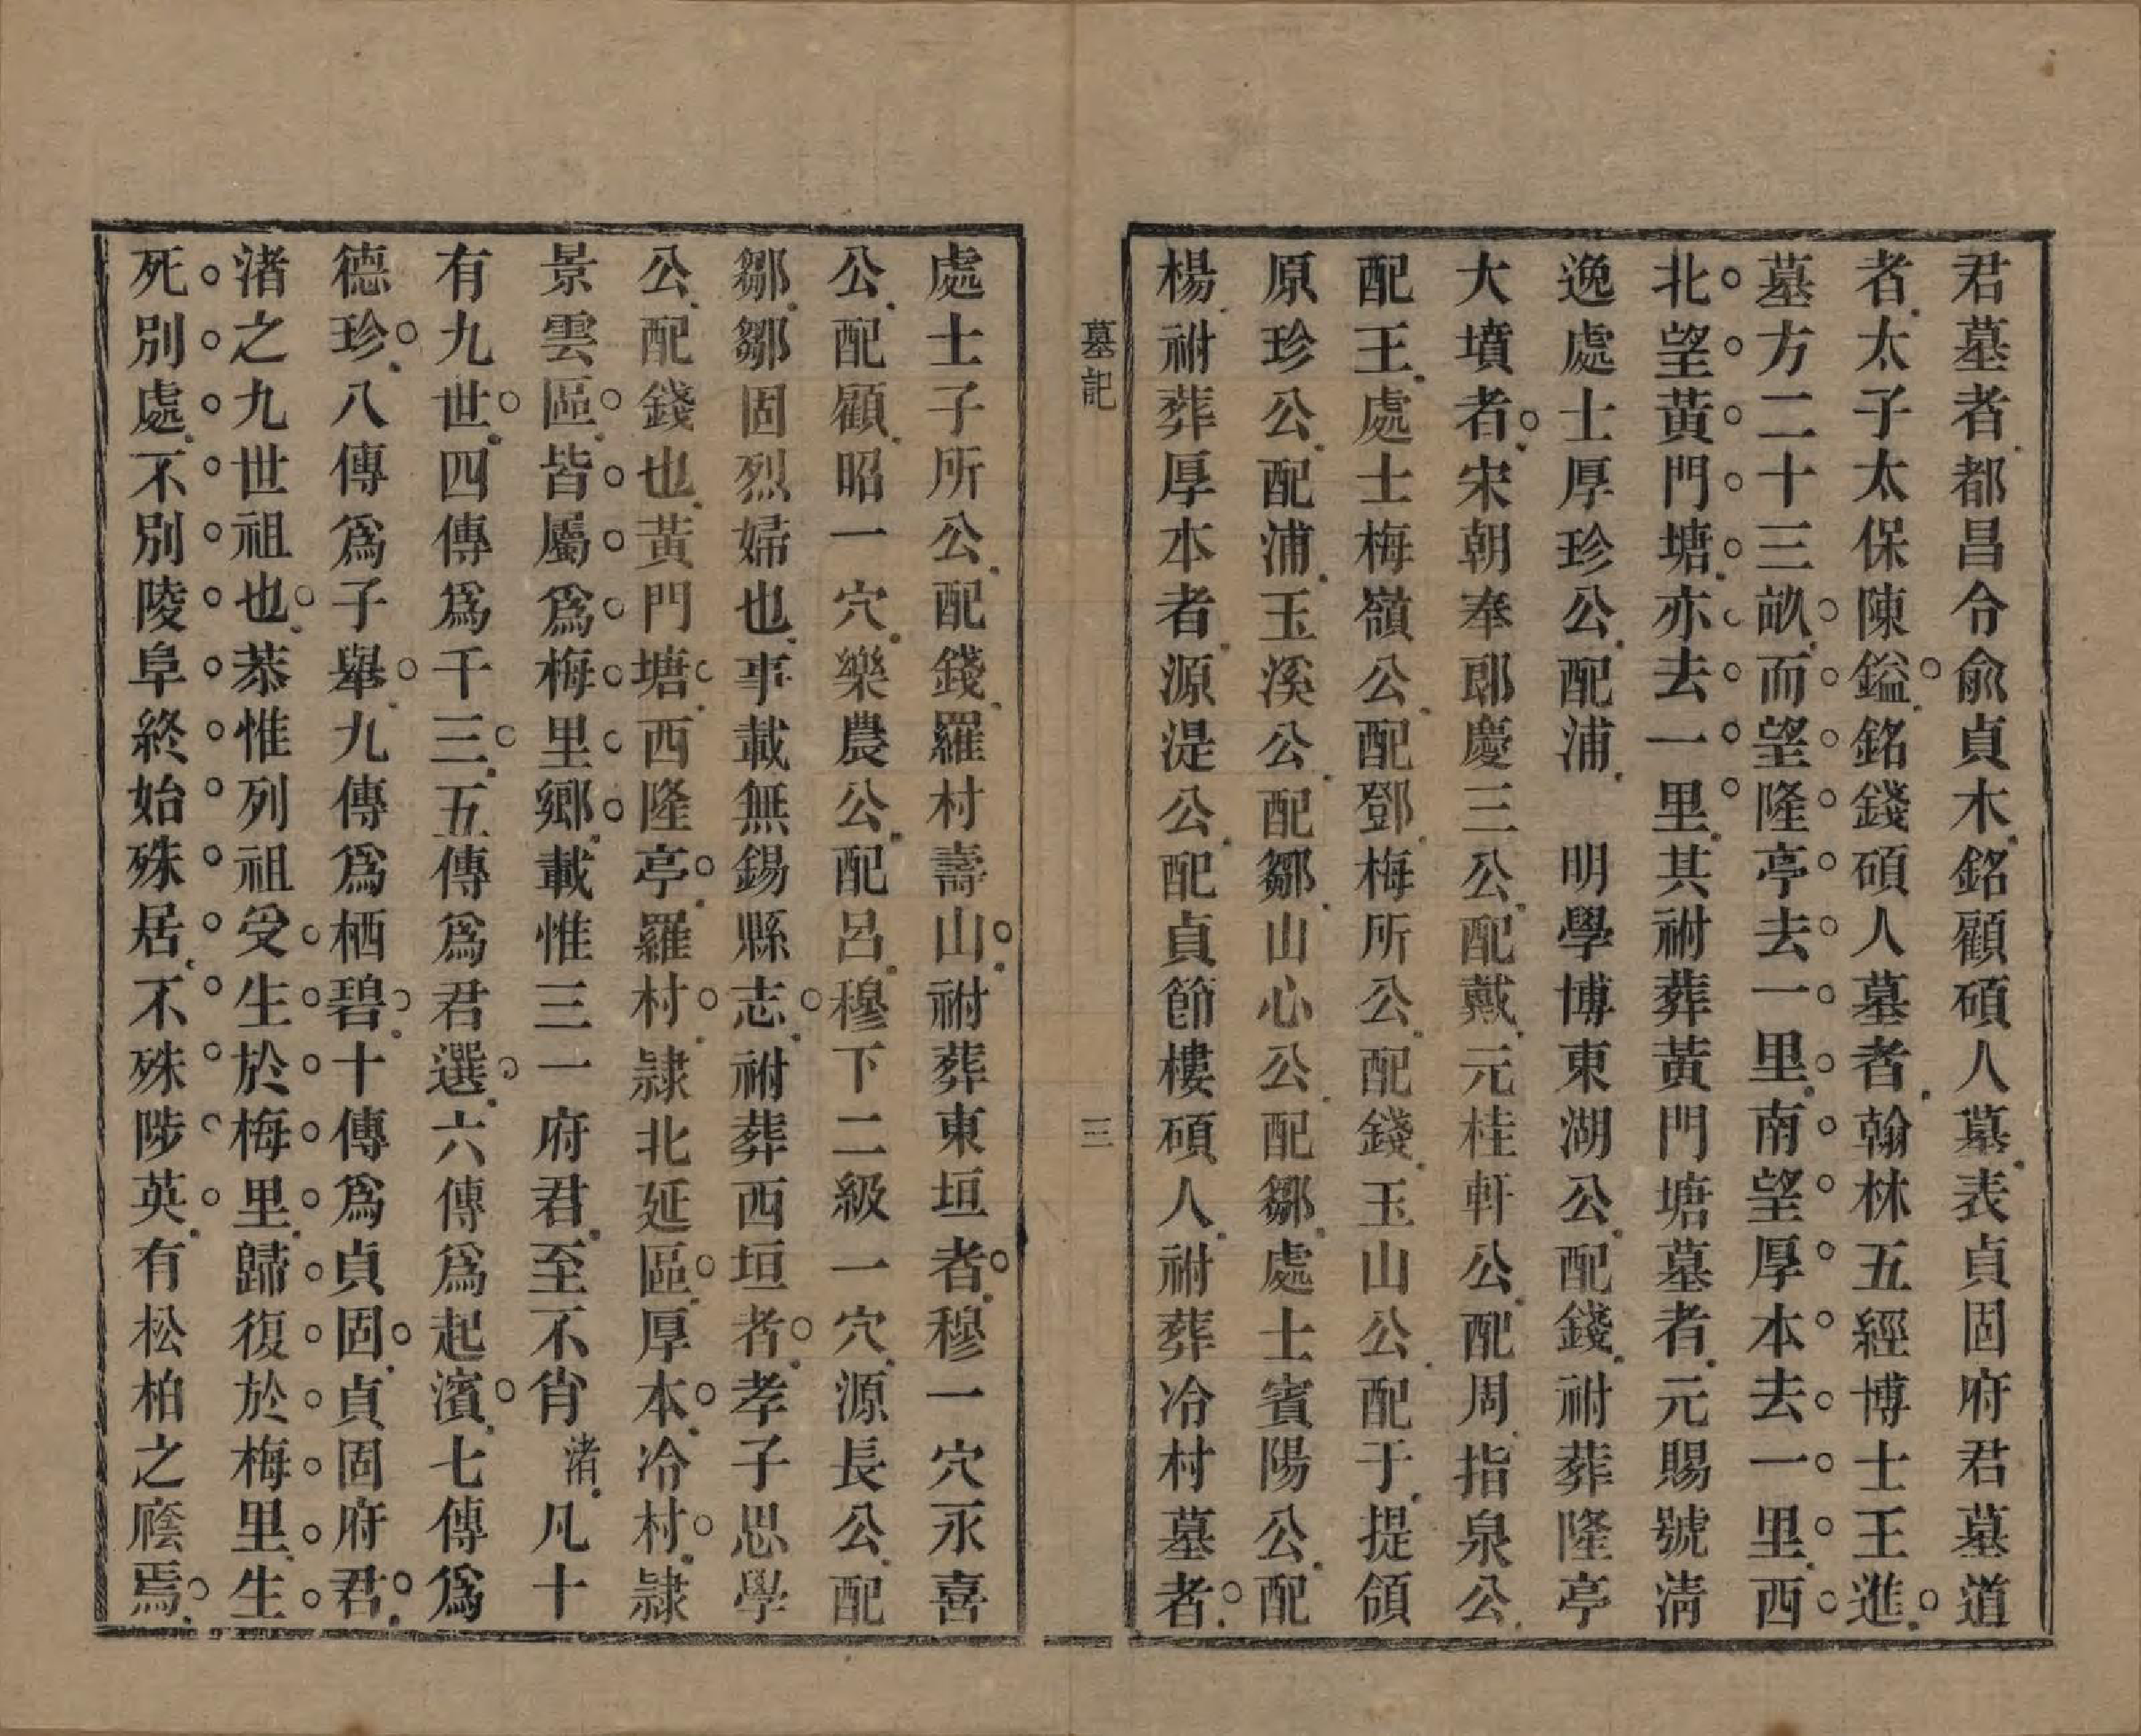 君墓者都昌令俞貞木銘顧碩人墓表貞固府君墓道
者太子太保陳鎰銘錢碩人墓者翰林五經博士王進
墓方二十三畝而望隆亭去一里南望厚本去一里西
北望黃門塘亦去一里其祔葬黃門塘墓者元賜號清
逸處士厚珍公配浦　明學博東湖公配錢祔葬隆亭
大墳者宋朝奉郎慶三公配戴元桂軒公配周指泉公
配王處士梅嶺公配鄧梅所公配錢玉山公配于提領
原珍公配浦玉溪公配鄒山心公配鄒處士賓陽公配
楊祔葬厚本者源湜公配貞節樓碩人祔葬冷村墓者
墓記
三
處士子所公配錢羅村壽山祔葬東垣者穆一穴永喜
公配顧昭一穴樂農公配呂穆下二級一穴源長公配
鄒鄒固烈婦也事載無錫縣志祔葬西垣者孝子思學
公配錢也黃門塘西隆亭羅村隷北延區厚本冷村隷
景雲區皆屬爲梅里鄉載惟三一府君至不肖渚凡十
有九世四傳爲千三五傳爲君選六傳爲起濱七傳爲
德珍八傳爲子舉九傳爲栖碧十傳爲貞固貞固府君
渚之九世祖也恭惟列祖受生於梅里歸復於梅里生
死別處不別陵阜終始殊居不殊陟英有松柏之廕焉